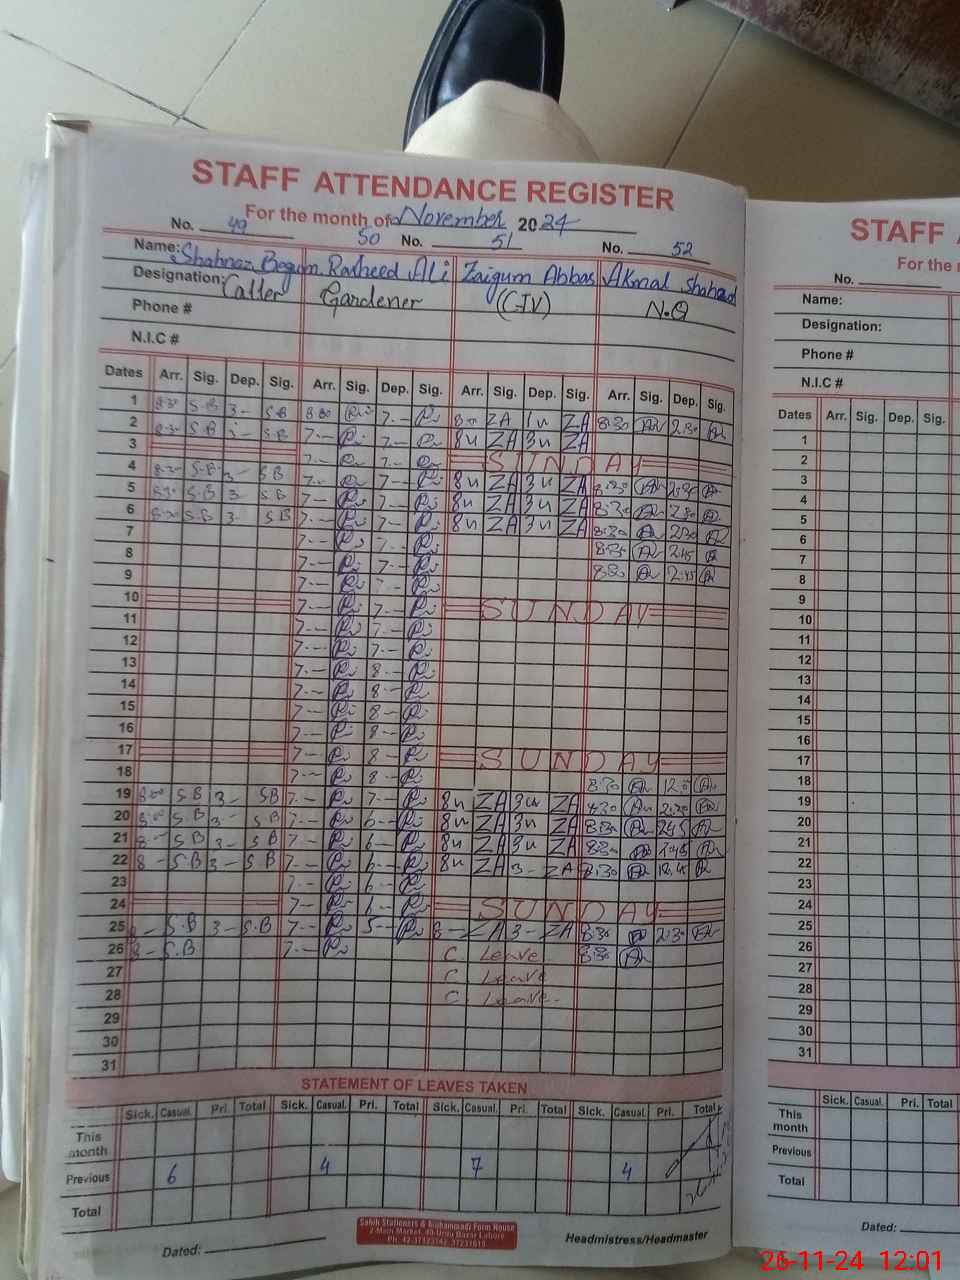 STAFF ATTENDANCE REGISTER
For the month of November 2024
No. 49 50 No. 51 No. 52
Name: Shahnaz Begum Rasheed Ali Zaigum Abbas Akmal Shahzad
Designation: Caller Gardener (C-IV) N.Q
Phone #
N.I.C #
Dates Arr. Sig. Dep. Sig. Arr. Sig. Dep. Sig. Arr. Sig. Dep. Sig. Arr. Sig. Dep. Sig.
1 8:30 S.B 3- S.B 7-- ZA ZA 8:30 2:30
2 S.B 3- S.B 7-- 7-- ZA 3 ZA
3 7-- 7-- SUNDAY
4 S.B 3- S.B 7-- 7-- ZA 3 ZA 8:30
5 S.B 3- S.B 7-- 7-- ZA 3 ZA 8:30 2:30
6 S.B 3- S.B 7-- 7-- ZA 3 ZA 8:30 2:30
7 7-- 7-- 8:30 2:45
8 7-- 7-- 8:30 2:45
9 7-- 7--
10 7-- 7-- SUNDAY
11 7-- 7--
12 7-- 7--
13 7-- 8--
14 7-- 8--
15 7-- 8--
16 7-- 8--
17 7-- 8-- SUNDAY
18 7-- 8-- 8:30
19 8:00 S.B 3- S.B 7-- 7-- ZA 3 ZA 8:30 2:30
20 8:00 S.B 3- S.B 7-- 6-- ZA 3 ZA 8:30 2:45
21 8- S.B 3- S.B 7-- 6-- ZA 3 ZA 8:30 1:45
22 8- S.B 3- S.B 7-- 6-- ZA 3- ZA 8:30 12:45
23 7-- 6--
24 7-- 6-- SUNDAY
25 8- S.B 3- S.B 7-- 5-- 8- ZA 3- ZA 8:30 2:30
26 8- S.B 7-- C. Leave 8:30
27 C. Leave
28 C. Leave
29
30
31
STATEMENT OF LEAVES TAKEN
Sick. Casual. Pri. Total Sick. Casual. Pri. Total Sick. Casual. Pri. Total Sick. Casual. Pri. Total
This month
Previous 6 4 7 4
Total
Sabih Stationers & Muhammadi Form House
2-Main Market, 40-Urdu Bazar Lahore
Ph. 42-37123142, 37231619
Dated: Headmistress/Headmaster
STAFF
For the
No.
Name:
Designation:
Phone #
N.I.C #
Dates Arr. Sig. Dep. Sig.
1
2
3
4
5
6
7
8
9
10
11
12
13
14
15
16
17
18
19
20
21
22
23
24
25
26
27
28
29
30
31
Sick. Casual. Pri. Total
This month
Previous
Total
Dated:
26-11-24 12:01